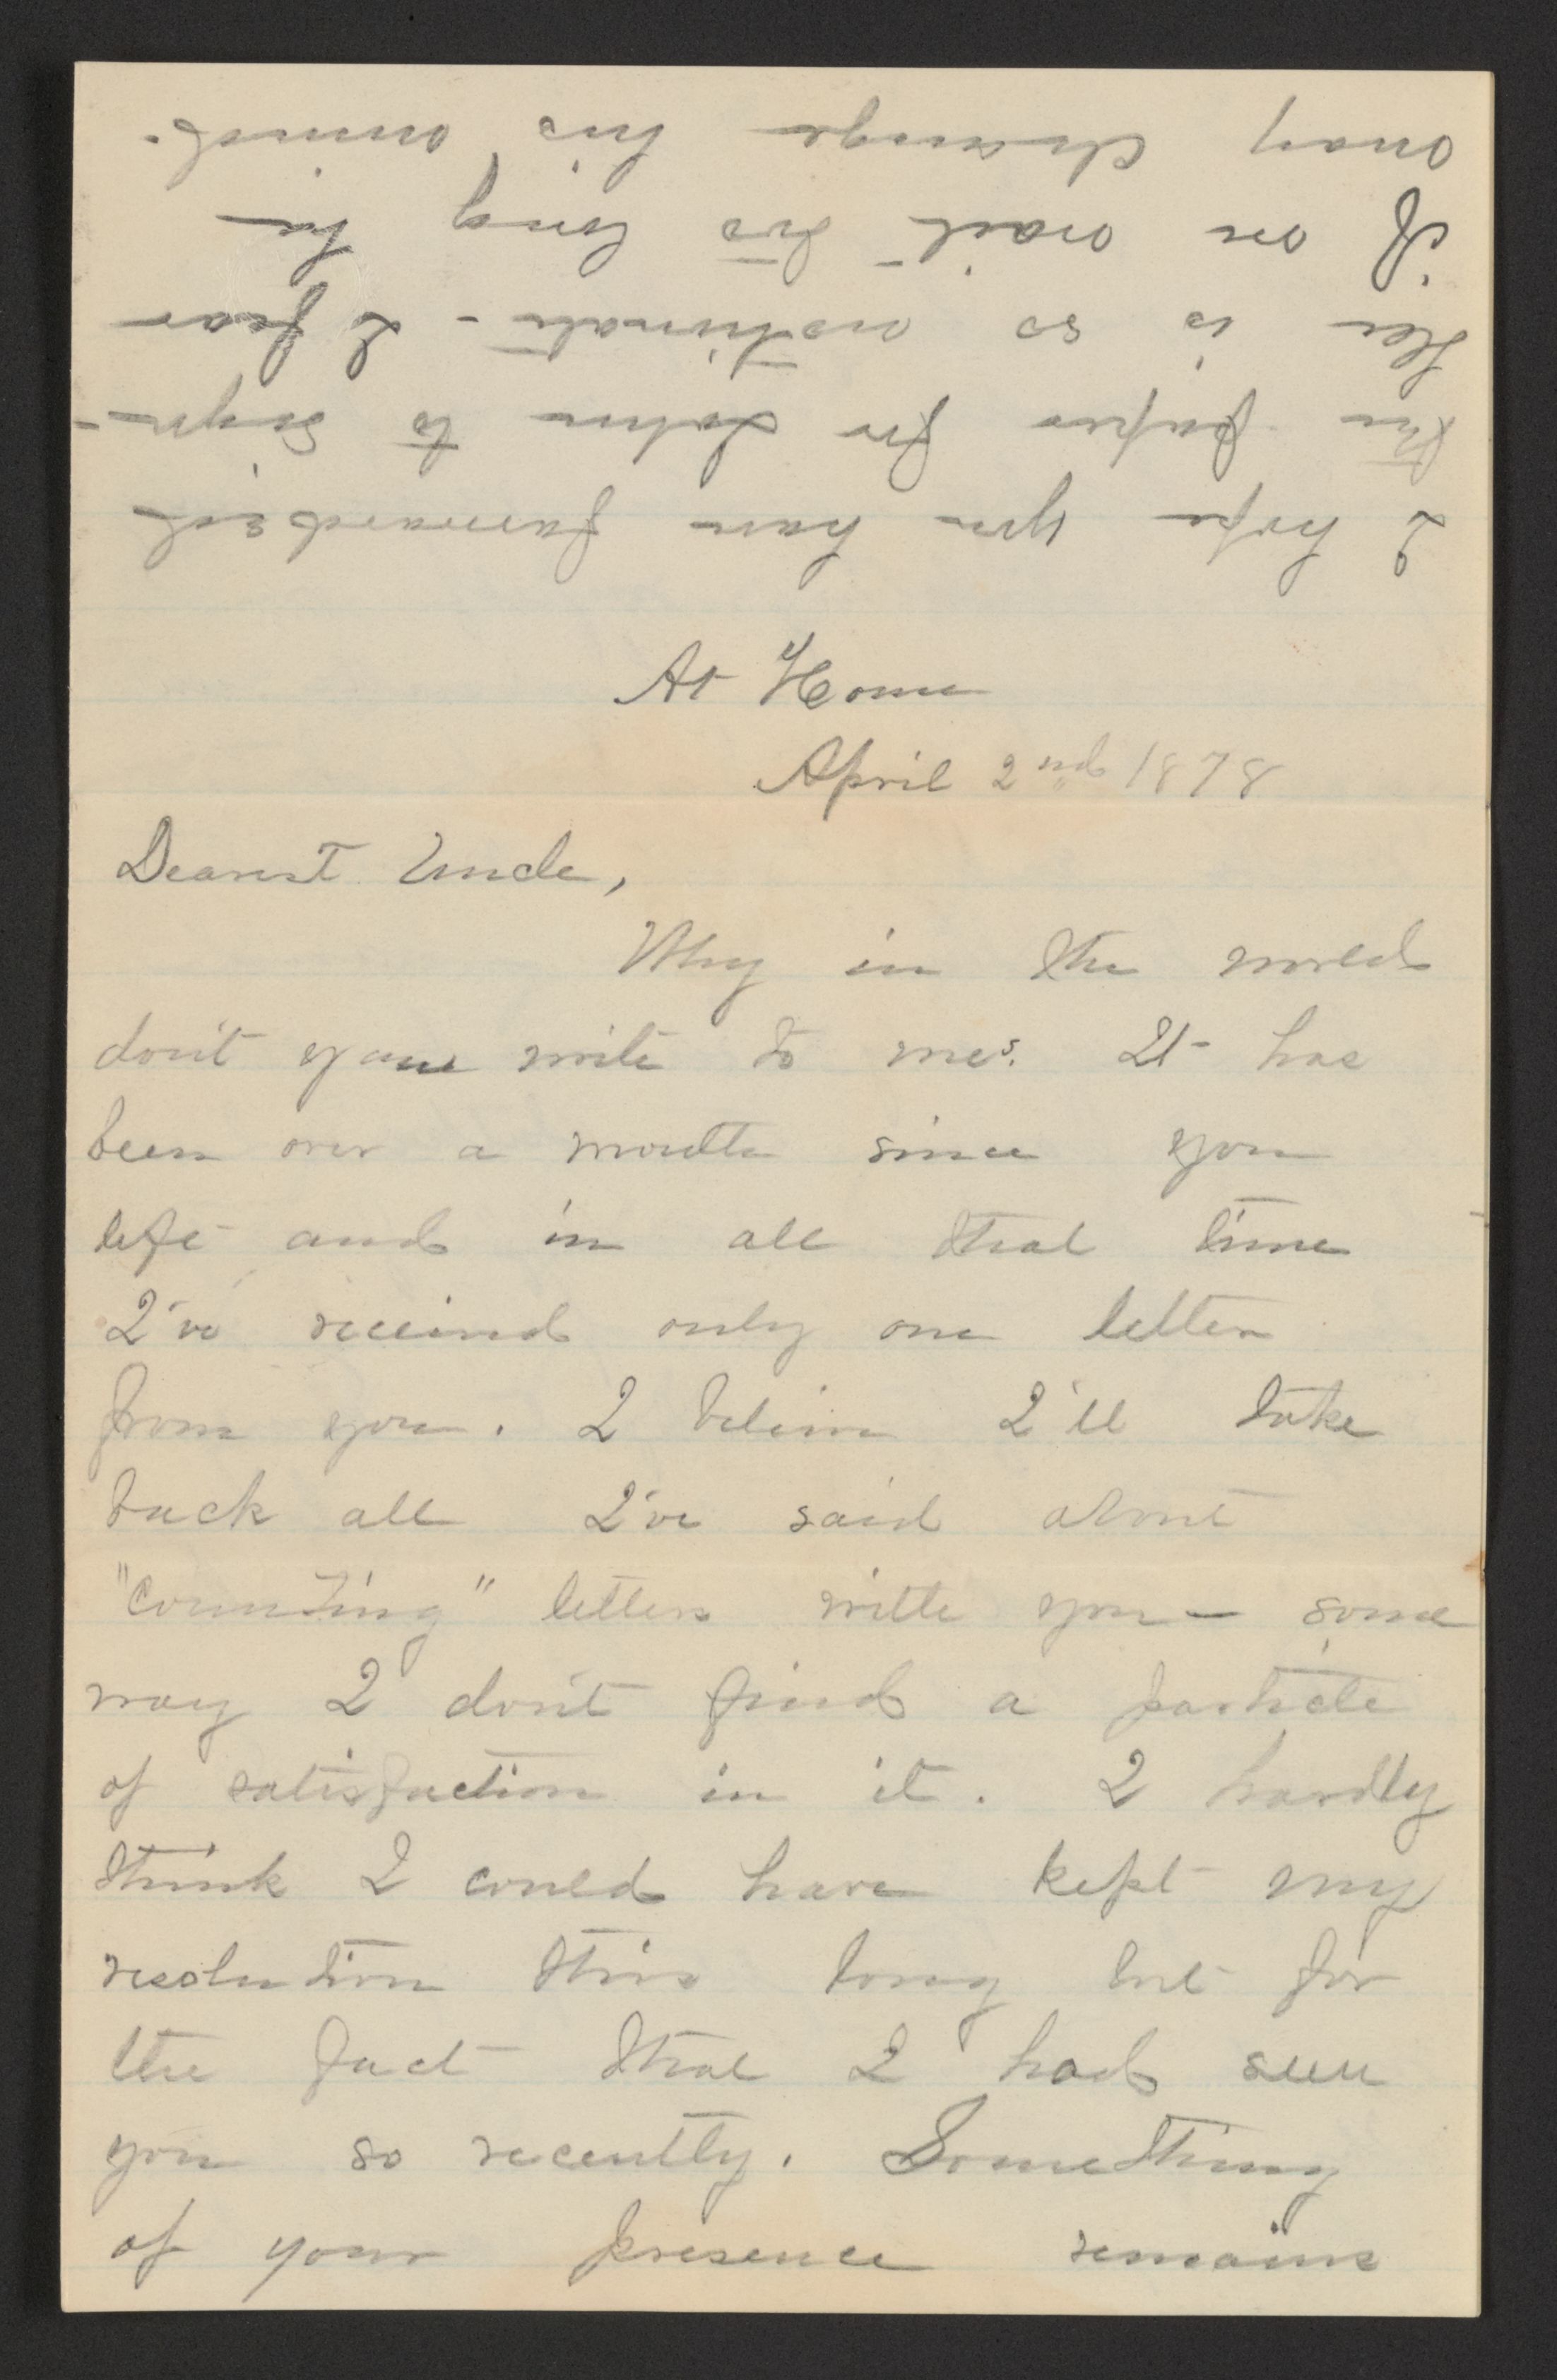 At Home
April 2nd 1878
Dearest Uncle,
Why in the world
don't you write to me? It has
been over a month since you
left and in all that time
I've received only one letter
from you. I believe I'll take
back all I've said about
"counting" letters with you — some
way I don't find a particle
of satisfaction in it. I hardly
think I could have kept my
resolution this long but for
the fact that I had seen
you so recently. Something
of your presence remains
I hope you have forwarded
the papers for to sign —
He is so - I fear
if we wait too long he
may change his mind.